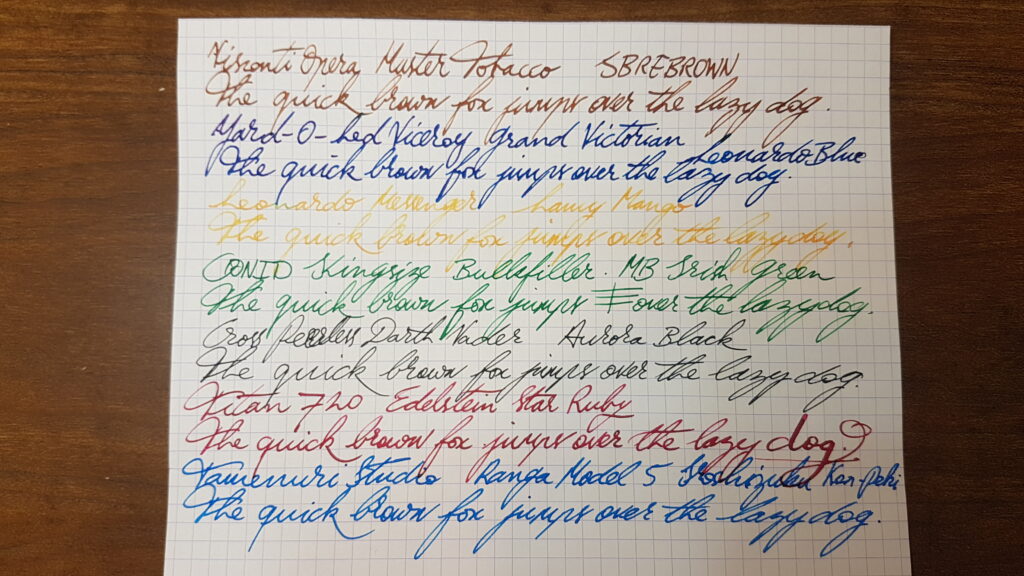 Visconti Opera Master Tobacco SBREBROWN
The quick brown fox jumps over the lazy dog.
Yard-O-Led Viceroy Grand Victorian Leonardo Blue
The quick brown fox jumps over the lazy dog.
Leonardo Messenger Lamy Mango
The quick brown fox jumps over the lazy dog.
CONID Kingsize Bulkfiller. MB Irish green
The quick brown fox jumps over the lazy dog.
Cross Peerless Darth Vader Aurora Black
The quick brown fox jumps over the lazy dog.
Titan 720 Edelstein Star Ruby
The quick brown fox jumps over the lazy dog
Tamenuri Studio Ranga Model 5 Kon-Peki
The quick brown fox jumps over the lazy dog.